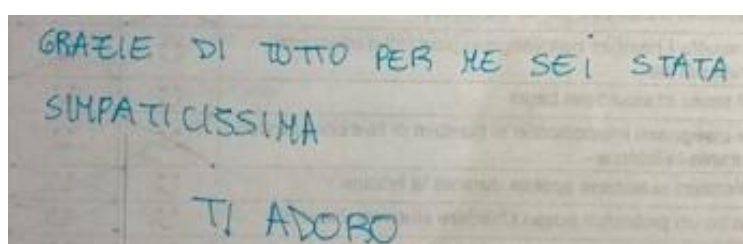 GRAZIE DI TUTTO PER ME SEI STATA
SIMPATICISSIMA
TI ADORO